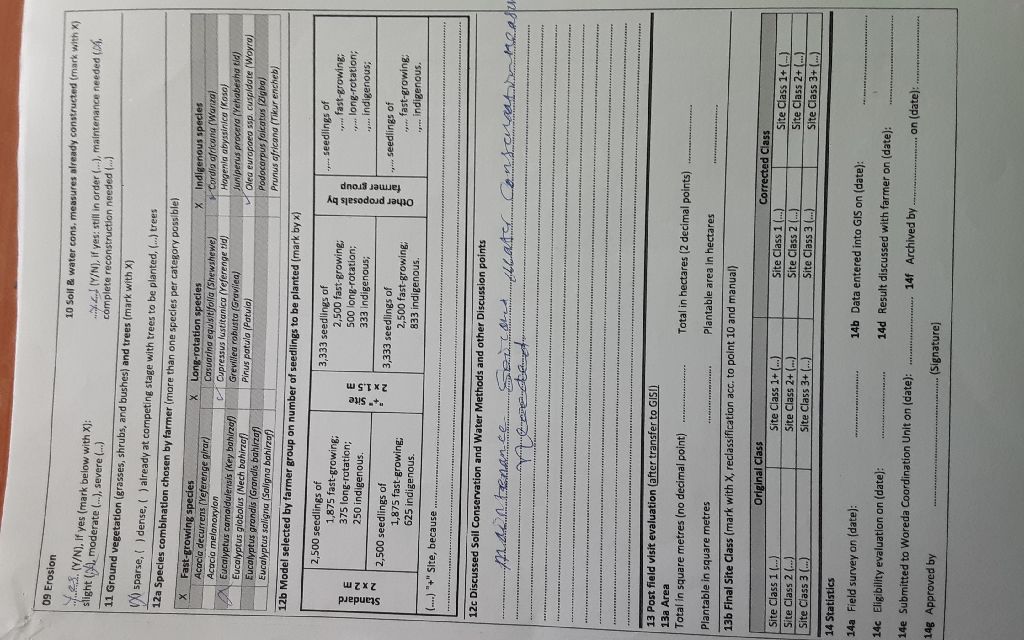 09 Erosion
Yes (Y/N), if yes (mark below with X):
slight (X), moderate (...), severe (...)
10 Soil & water cons. measures already constructed (mark with X)
Yes (Y/N), if yes: still in order (...), maintenance needed (X),
complete reconstruction needed (...)
11 Ground vegetation (grasses, shrubs, and bushes) and trees (mark with X)
(X) sparse, ( ) dense, ( ) already at competing stage with trees to be planted, (...) trees
12a Species combination chosen by farmer (more than one species per category possible)
X Fast-growing species X Long-rotation species X Indigenous species
Acacia decurrens (Yeferenge girar) Casuarina equisitifolia (Shewshewe) ✓ Cordia africana (Wanza)
Acacia melanoxylon ✓ Cupressus lusitanica (Yeferenge tid) Hagenia abyssinica (Koso)
Eucalyptus camaldulensis (Key bahirzaf) Grevillea robusta (Gravilea) Juniperus procera (Yehabesha tid)
Eucalyptus globolus (Nech bahirzaf) Pinus patula (Patula) ✓ Olea europaea ssp. cuspidate (Woyra)
Eucalyptus grandis (Grandis bahirzaf) Podocarpus falcatus (Zigba)
Eucalyptus saligna (Saligna bahirzaf) Prunus africana (Tikur encheb)
12b Model selected by farmer group on number of seedlings to be planted (mark by x)
Standard
2 x 2 m
2,500 seedlings of
1,875 fast-growing;
375 long-rotation;
250 indigenous.
2,500 seedlings of
1,875 fast-growing,
625 indigenous.
"+" Site
2 x 1.5 m
3,333 seedlings of
2,500 fast-growing;
500 long-rotation;
333 indigenous;
3,333 seedlings of
2,500 fast-growing;
833 indigenous.
Other proposals by
farmer group
.... seedlings of
.... fast-growing;
.... long-rotation;
.... indigenous;
.... seedlings of
.... fast-growing;
.... indigenous.
(....) "+" Site, because
12c Discussed Soil Conservation and Water Methods and other Discussion points
maintenance Soil and water Conservation measure
Needed
13 Post field visit evaluation (after transfer to GIS!)
13a Area
Total in square metres (no decimal point) ............ Total in hectares (2 decimal points) ............
Plantable in square metres ............ Plantable area in hectares ............
13b Final Site Class (mark with X, reclassification acc. to point 10 and manual)
Original Class Corrected Class
Site Class 1 (...) Site Class 1+ (...) Site Class 1 (...) Site Class 1+ (...)
Site Class 2 (...) Site Class 2+ (...) Site Class 2 (...) Site Class 2+ (...)
Site Class 3 (...) Site Class 3+ (...) Site Class 3 (...) Site Class 3+ (...)
14 Statistics
14a Field survey on (date): ............ 14b Data entered into GIS on (date): ............
14c Eligibility evaluation on (date): ............ 14d Result discussed with farmer on (date): ............
14e Submitted to Woreda Coordination Unit on (date): ............ 14f Archived by ............ on (date): ............
14g Approved by ............ (Signature)